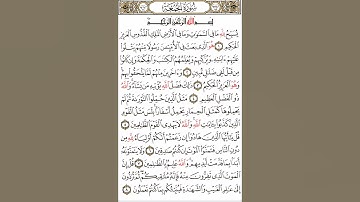 سُورَةُ الجُمُعَةِ
بِسْمِ اللَّهِ الرَّحْمَٰنِ الرَّحِيمِ
يُسَبِّحُ لِلَّهِ مَا فِي السَّمَٰوَٰتِ وَمَا فِي الْأَرْضِ الْمَلِكِ الْقُدُّوسِ الْعَزِيزِ
الْحَكِيمِ ۝ هُوَ الَّذِي بَعَثَ فِي الْأُمِّيِّينَ رَسُولًا مِنْهُمْ يَتْلُوا
عَلَيْهِمْ ءَايَٰتِهِ وَيُزَكِّيهِمْ وَيُعَلِّمُهُمُ الْكِتَٰبَ وَالْحِكْمَةَ وَإِنْ كَانُوا
مِنْ قَبْلُ لَفِي ضَلَٰلٍ مُبِينٍ ۝ وَءَاخَرِينَ مِنْهُمْ لَمَّا يَلْحَقُوا بِهِمْ
وَهُوَ الْعَزِيزُ الْحَكِيمُ ۝ ذَٰلِكَ فَضْلُ اللَّهِ يُؤْتِيهِ مَنْ يَشَاءُ وَاللَّهُ
ذُو الْفَضْلِ الْعَظِيمِ ۝ مَثَلُ الَّذِينَ حُمِّلُوا التَّوْرَىٰةَ ثُمَّ
لَمْ يَحْمِلُوهَا كَمَثَلِ الْحِمَارِ يَحْمِلُ أَسْفَارًا بِئْسَ مَثَلُ الْقَوْمِ
الَّذِينَ كَذَّبُوا بِـَٔايَٰتِ اللَّهِ وَاللَّهُ لَا يَهْدِي الْقَوْمَ الظَّٰلِمِينَ ۝
قُلْ يَٰأَيُّهَا الَّذِينَ هَادُوا إِنْ زَعَمْتُمْ أَنَّكُمْ أَوْلِيَاءُ لِلَّهِ مِنْ
دُونِ النَّاسِ فَتَمَنَّوُا الْمَوْتَ إِنْ كُنْتُمْ صَٰدِقِينَ ۝ وَلَا يَتَمَنَّوْنَهُ
أَبَدًا بِمَا قَدَّمَتْ أَيْدِيهِمْ وَاللَّهُ عَلِيمٌ بِالظَّٰلِمِينَ ۝ قُلْ إِنَّ
الْمَوْتَ الَّذِي تَفِرُّونَ مِنْهُ فَإِنَّهُ مُلَٰقِيكُمْ ثُمَّ تُرَدُّونَ
إِلَىٰ عَٰلِمِ الْغَيْبِ وَالشَّهَٰدَةِ فَيُنَبِّئُكُمْ بِمَا كُنْتُمْ تَعْمَلُونَ ۝